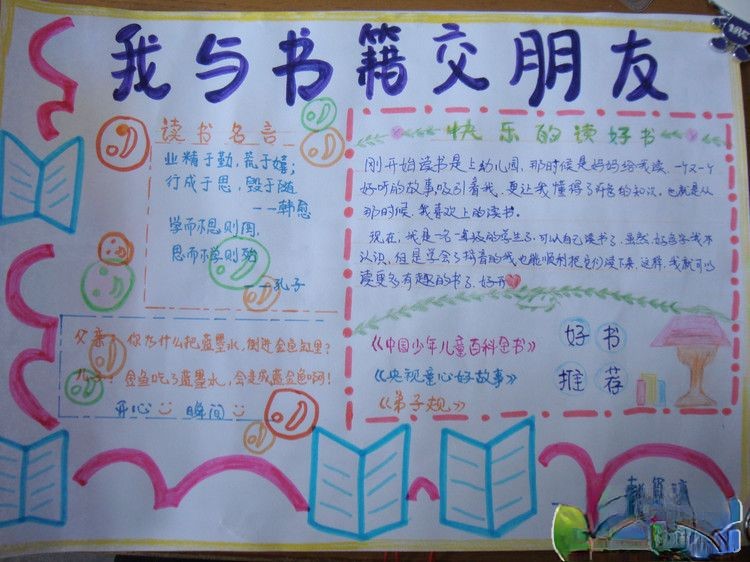 我与书籍交朋友
读书名言
业精于勤，荒于嬉；
行成于思，毁于随
——韩愈
学而不思则罔，
思而不学则殆
——孔子
父亲：你为什么把蓝墨水，倒进金鱼缸里？
儿子：金鱼吃了蓝墨水，会变成蓝金鱼啊！
开心 瞬间
快乐的读好书
刚开始读书是上幼儿园，那时候是妈妈给我读，一个又一个
好听的故事，吸引着我，更让我懂得了所有的知识。也就是从
那时候，我喜欢上的读书。
现在，我是一名真正的学生了，可以自己读书了，虽然，好多字我不
认识，但是学会了拼音的我也能顺利把它们读下来，这样，我就可以
读更多有趣的书了，好开
《中国少年儿童百科全书》
《央视童心好故事》
《弟子规》
好书
推荐